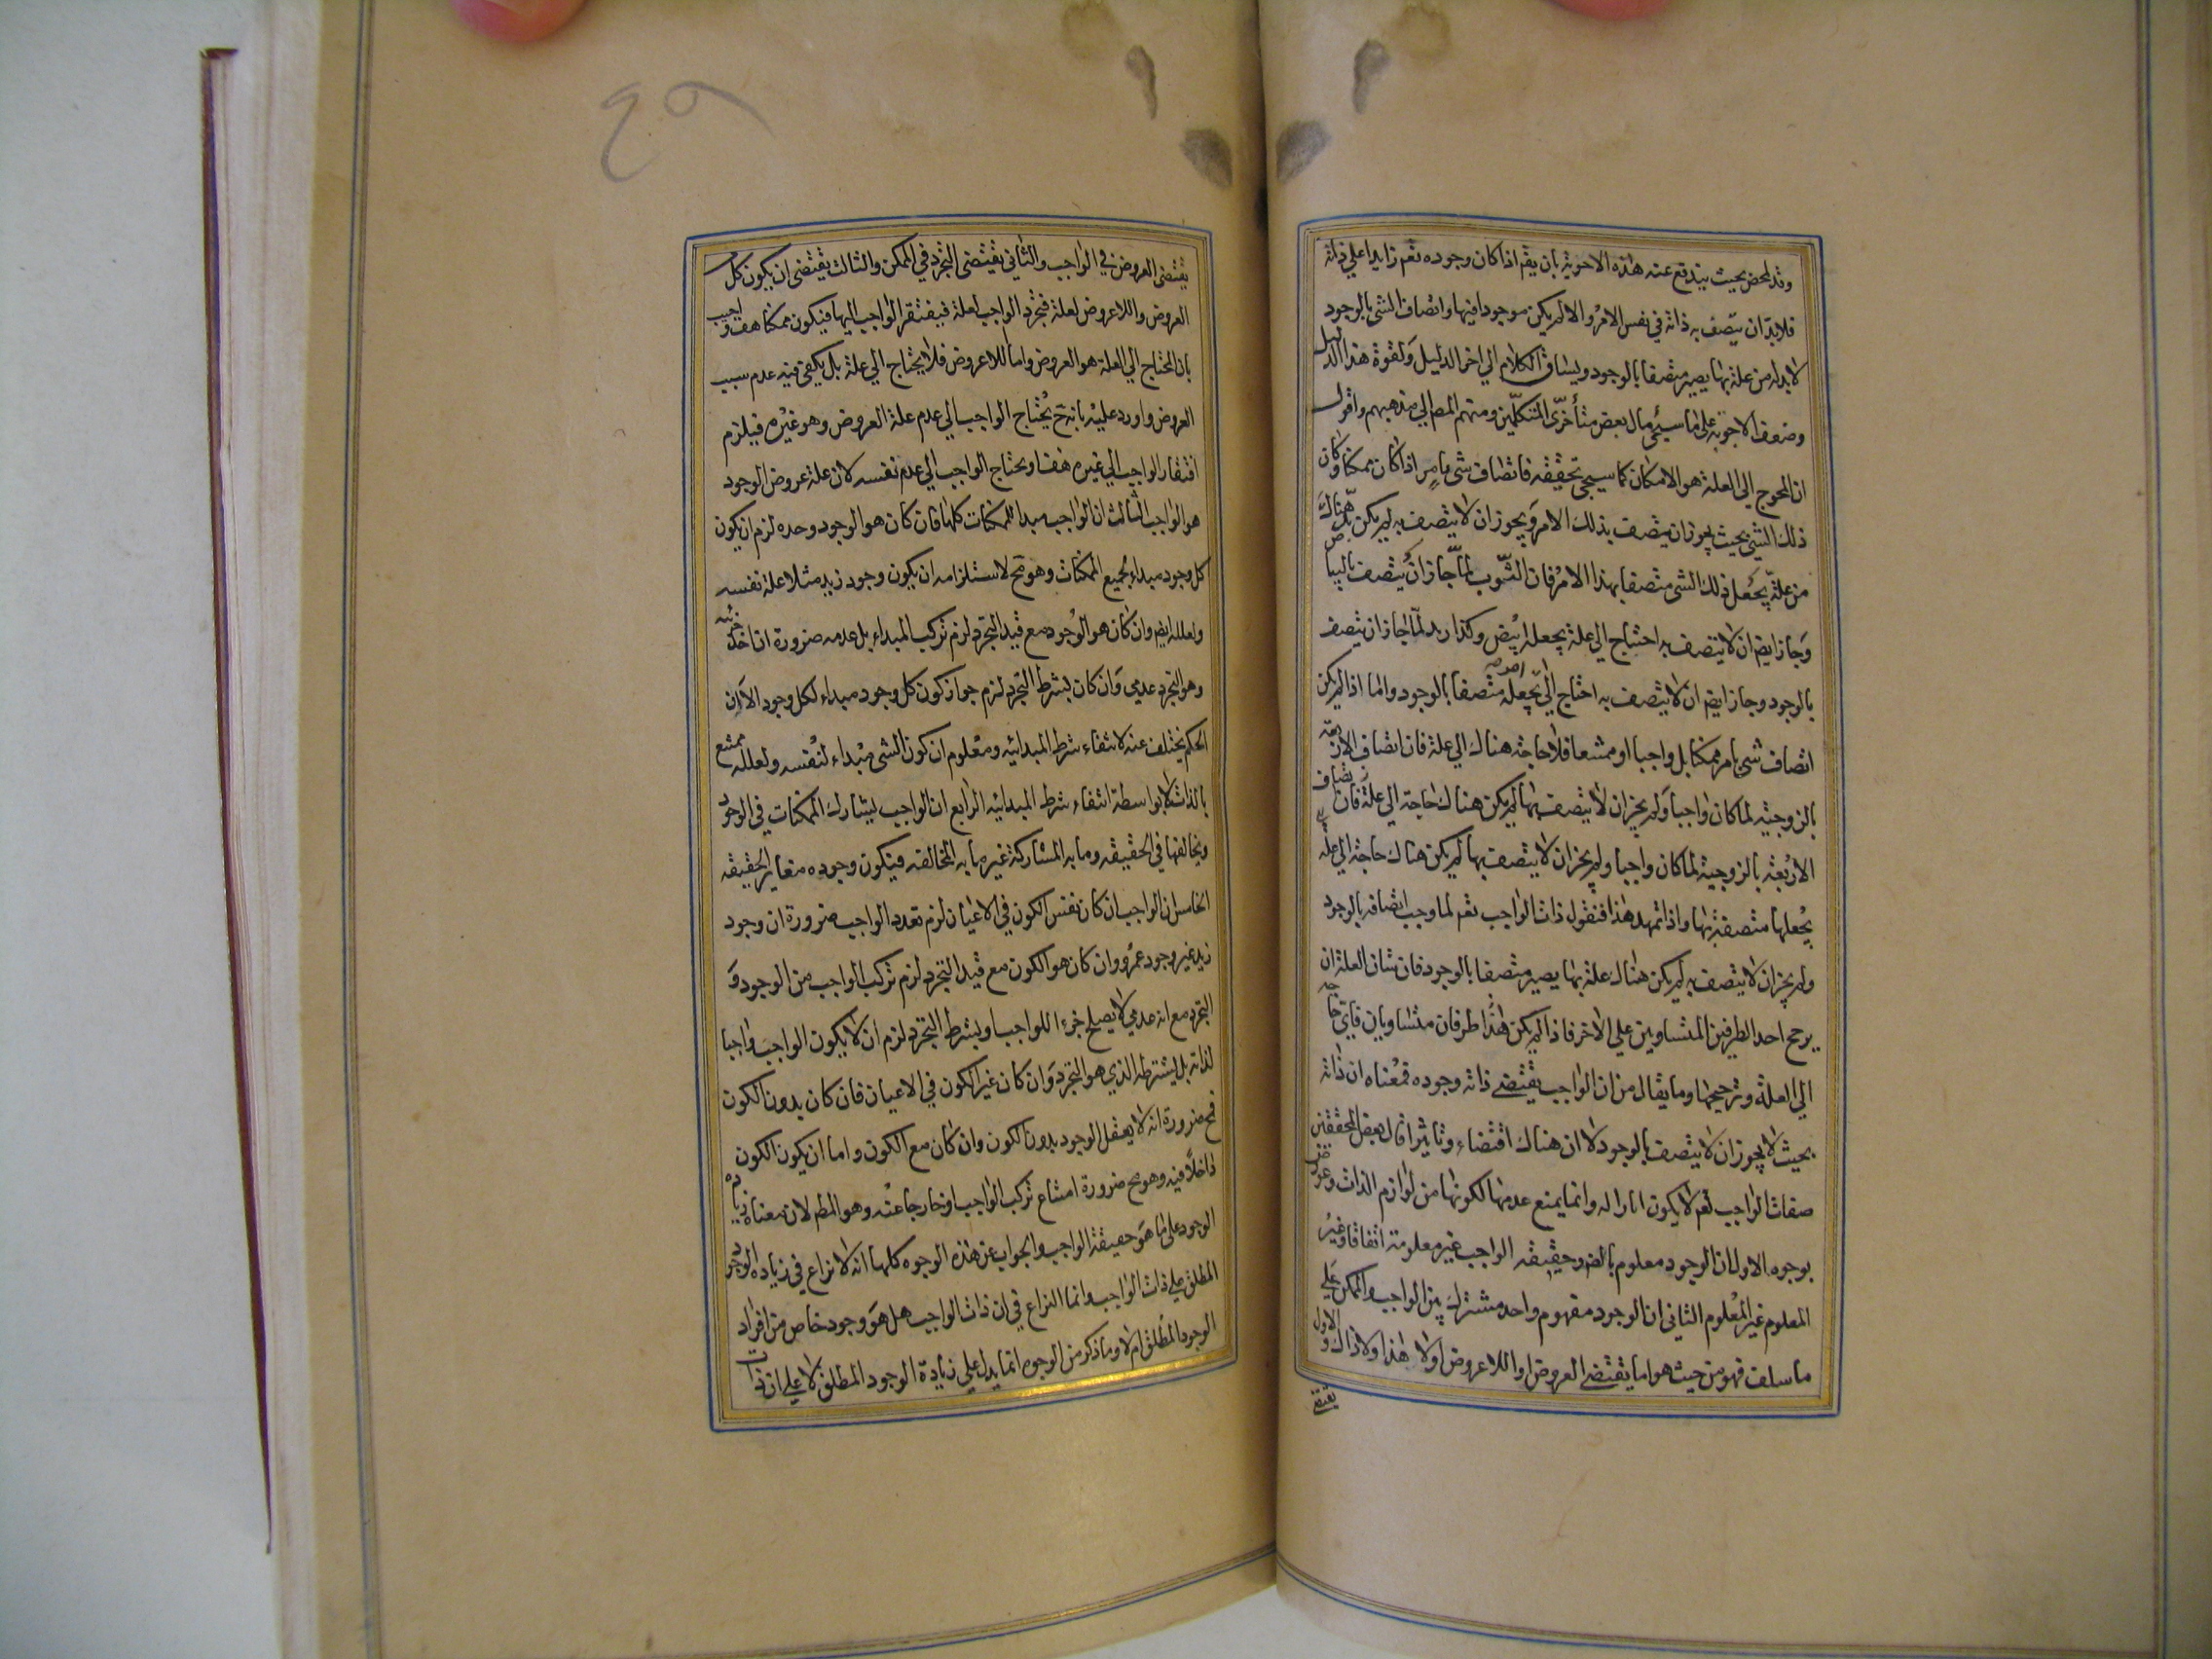 وقد لخص بحيث يندفع عنه هذه الاجوبة بان يقم اذا كان وجوده تعم زايدا علي ذاته
فلابد ان يتصف به ذاته في نفس الامر والا لم يكن موجودا فيها واتصاف الشي بالوجود
لا بد له من علة بها يصير متصفا بالوجود ويساق الكلام الي اخر الدليل ولقوة هذا الدليل
وضعف الاجوبة علي ما سيجي مال بعض متأخري المتكلمين ومنهم المصم الي مذهبهم واقول
ان المحوج الي العلة هو الامكان كما سيجي تحقيقه فاتصاف شي بامر اذا كان ممكنا وكان
ذلك الشي بحيث يجوز ان يتصف بذلك الامر ويجوز ان لا يتصف به لم يكن بد هناك
من علة يجعل ذلك الشي متصفا بهذا الامر فان الثوب لما جاز ان يتصف بالبياض
وجاز ايضم ان لا يتصف به احتياج الي علة يجعله ابيض وكذا زيد لما جاز ان يتصف
بالوجود وجاز ايضم ان لا يتصف به احتاج الي امر يجعله متصفا بالوجود واما اذا لم يكن
اتصاف شي بامر ممكنا بل واجبا او ممتنعا فلا حاجة هناك الي علة فان اتصاف الاربعة
بالزوجية لما كان واجبا ولم يجز ان لا يتصف بها لم يكن هناك حاجة الي علة فان اتصاف
الاربعة بالزوجية لما كان واجبا ولم يجز ان لا يتصف بها لم يكن هناك حاجة الي علة
يجعلها متصفة بها واذا تمهد هذا فنقول ذات الواجب تعم لما وجب اتصافه بالوجود
ولم يجز ان لا يتصف به لم يكن هناك علة بها يصير متصفا بالوجود فان شان العلة ان
يرجح احد الطرفين المتساويين علي الاخر فاذا لم يكن هنا طرفان متساويان فاي حاجة
الي العلة وترجيحها وما يقال من ان الواجب يقتضي ذاته وجوده فمعناه ان ذاته
بحيث لا يجوز ان لا يتصف بالوجود لا ان هناك اقتضاء وتاثيرا قال بعض المحققين
صفات الواجب تعم لا يكون اثارا له وانما يمتنع عدمها لكونها من لوازم الذات وعورض
بوجوه الاول ان الوجود معلوم بالضم وحقيقة الواجب غير معلومة اتفاقا وغير
المعلوم غير المعلوم الثاني ان الوجود مفهوم واحد مشترك بين الواجب والممكن علي
ما سلف فهو من حيث هو اما يقتضي العروض او اللاعروض اولا هذا ولا ذاك والاول
يقتضي
يقتضي العروض في الواجب والثاني يقتضي التجرد في الممكن والثالث يقتضي ان يكون كل
العروض واللاعروض لعلة فتجرد الواجب لعلة فيفتقر الواجب اليها فيكون ممكنا هف واجيب
بان المحتاج الي العلة هو العروض واما اللاعروض فلا يحتاج الي علة بل يكفي فيه عدم سبب
العروض واورد عليه بانه ح يحتاج الواجب الي عدم علة العروض وهو غيره فيلزم
افتقار الواجب الي غيره هف او يحتاج الواجب الي عدم نفسه لان علة عروض الوجود
هو الواجب الثالث ان الواجب مبدا للممكنات كلها فان كان هو الوجود وحده لزم ان يكون
كل وجود مبداء لجميع الممكنات وهو مح لاستلزامه ان يكون وجود زيد مثلا علة نفسه
ولعلله ايضم وان كان هو الوجود مع قيد التجرد لزم تركب المبداء بل عدمه ضرورة ان احد جزئيه
وهو التجرد عدمي وان كان بشرط التجرد لزم جواز كون كل وجود مبداء لكل وجود الا ان
الحكم يختلف عنه لانتفاء شرط المبدائيه ومعلوم ان كون الشي مبداء لنفسه ولعلله ممتنع
بالذات لا بواسطة انتفاء شرط المبدائيه الرابع ان الواجب يشارك الممكنات في الوجود
ويخالفها في الحقيقه وما به المشاركة غير ما به المخالفه فيكون وجوده مغاير الحقيقه
الخامس ان الواجب ان كان نفس الكون في الاعيان لزم تعدد الواجب ضرورة ان وجود
زيد غير وجود عمرو وان كان هو الكون مع قيد التجرد لزم تركب الواجب من الوجود و
التجرد مع انه عدمي لا يصلح جزءا للواجب او بشرط التجرد لزم ان لا يكون الواجب واجبا
لذاته بل بشرطه الذي هو التجرد وان كان غير الكون في الاعيان فان كان بدون الكون
فمح ضرورة انه لا يعقل الوجود بدون الكون وان كان مع الكون واما ان يكون الكون
داخلا فيه وهو مح ضرورة امتناع تركب الواجب او خارجا عنه وهو المطم لان معناه زيادة
الوجود علي ما هو حقيقة الواجب والجواب عن هذه الوجوه كلها انه لا نزاع في زيادة الوجود
المطلق علي ذات الواجب وانما النزاع في ان ذات الواجب هل هو وجود خاص من افراد
الوجود المطلق ام لا وما ذكر من الوجوه انما يدل علي زيادة الوجود المطلق لا علي ان ذات